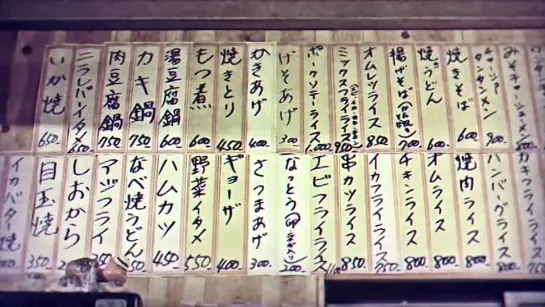 みそチャーシューメン 900
タンタンメン 900
焼きそば 600
焼うどん 600
揚げそば 700
オムレツライス 850
ミックスフライライス
ポークソテーライス 1,000
げそあげ 300
かきあげ 400
焼きとり 450
もつ煮 600
湯豆腐鍋 600
カキ鍋 750
肉豆腐鍋 750
ニラレバーイタメ
いか焼 650
カキフライライス
ハンバーグライス 850
焼肉ライス 800
オムライス 800
チキンライス 800
イカフライライス 750
串カツライス 850
エビフライライス
なっとう 200
さつまあげ 300
ギョーザ 400
野菜イタメ 550
ハムカツ 450
なべ焼うどん
アジフライ
しおから
目玉焼 350
イカバター焼